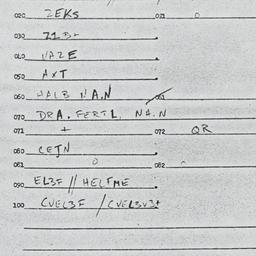 020 ZEKS 021 0
030 ZZB+
040 VAZE
050 AXT
060 HALB NAN 061
070 DRA. FERTL. NA.N
071 + 072 QR
080 CETN
081 0 082
090 EL3F // HELFME
100 CVEL3F / CVEL3V3+